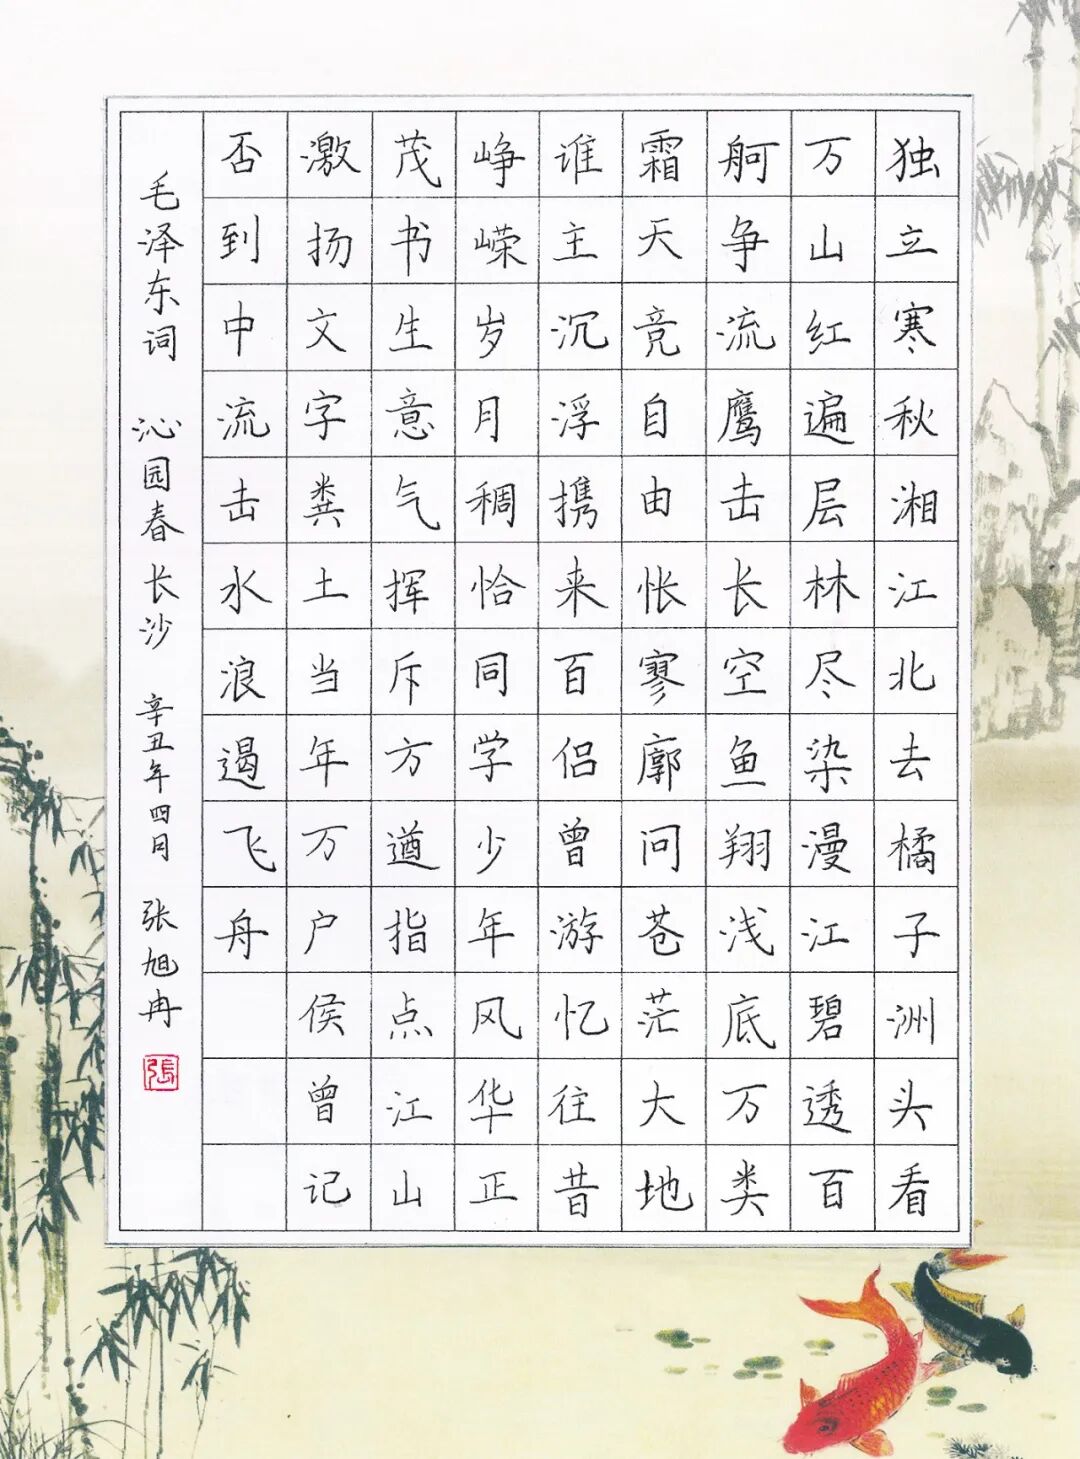 独立寒秋湘江北去橘子洲头看
万山红遍层林尽染漫江碧透百
舸争流鹰击长空鱼翔浅底万类
霜天竞自由怅寥廓问苍茫大地
谁主沉浮携来百侣曾游忆往昔
峥嵘岁月稠恰同学少年风华正
茂书生意气挥斥方遒指点江山
激扬文字粪土当年万户侯曾记
否到中流击水浪遏飞舟
毛泽东词 沁园春 长沙 辛丑年四月 张旭冉
張